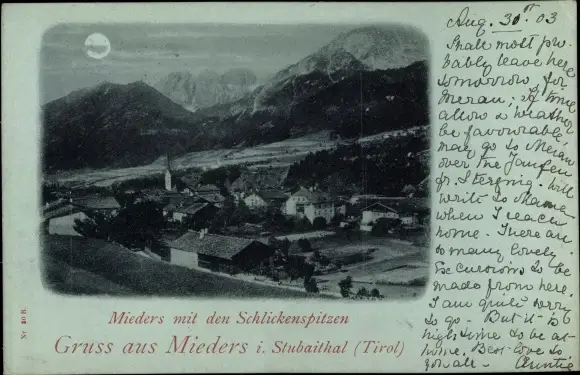 Aug. 30th 03
Shall most pro-
bably leave here
tomorrow for
Meran; If time
allow & weather
be favourable
may go to Meran
over the Jaufen
fr. Sterzing. Will
write to Mama
when I reach
home. There are
so many lovely
Excursions to be
made from here.
I am quite sorry
to go. But it is
high time to be at
home. Best love to
you all. Auntie
Mieders mit den Schlickenspitzen
Gruss aus Mieders i. Stubaithal (Tirol)